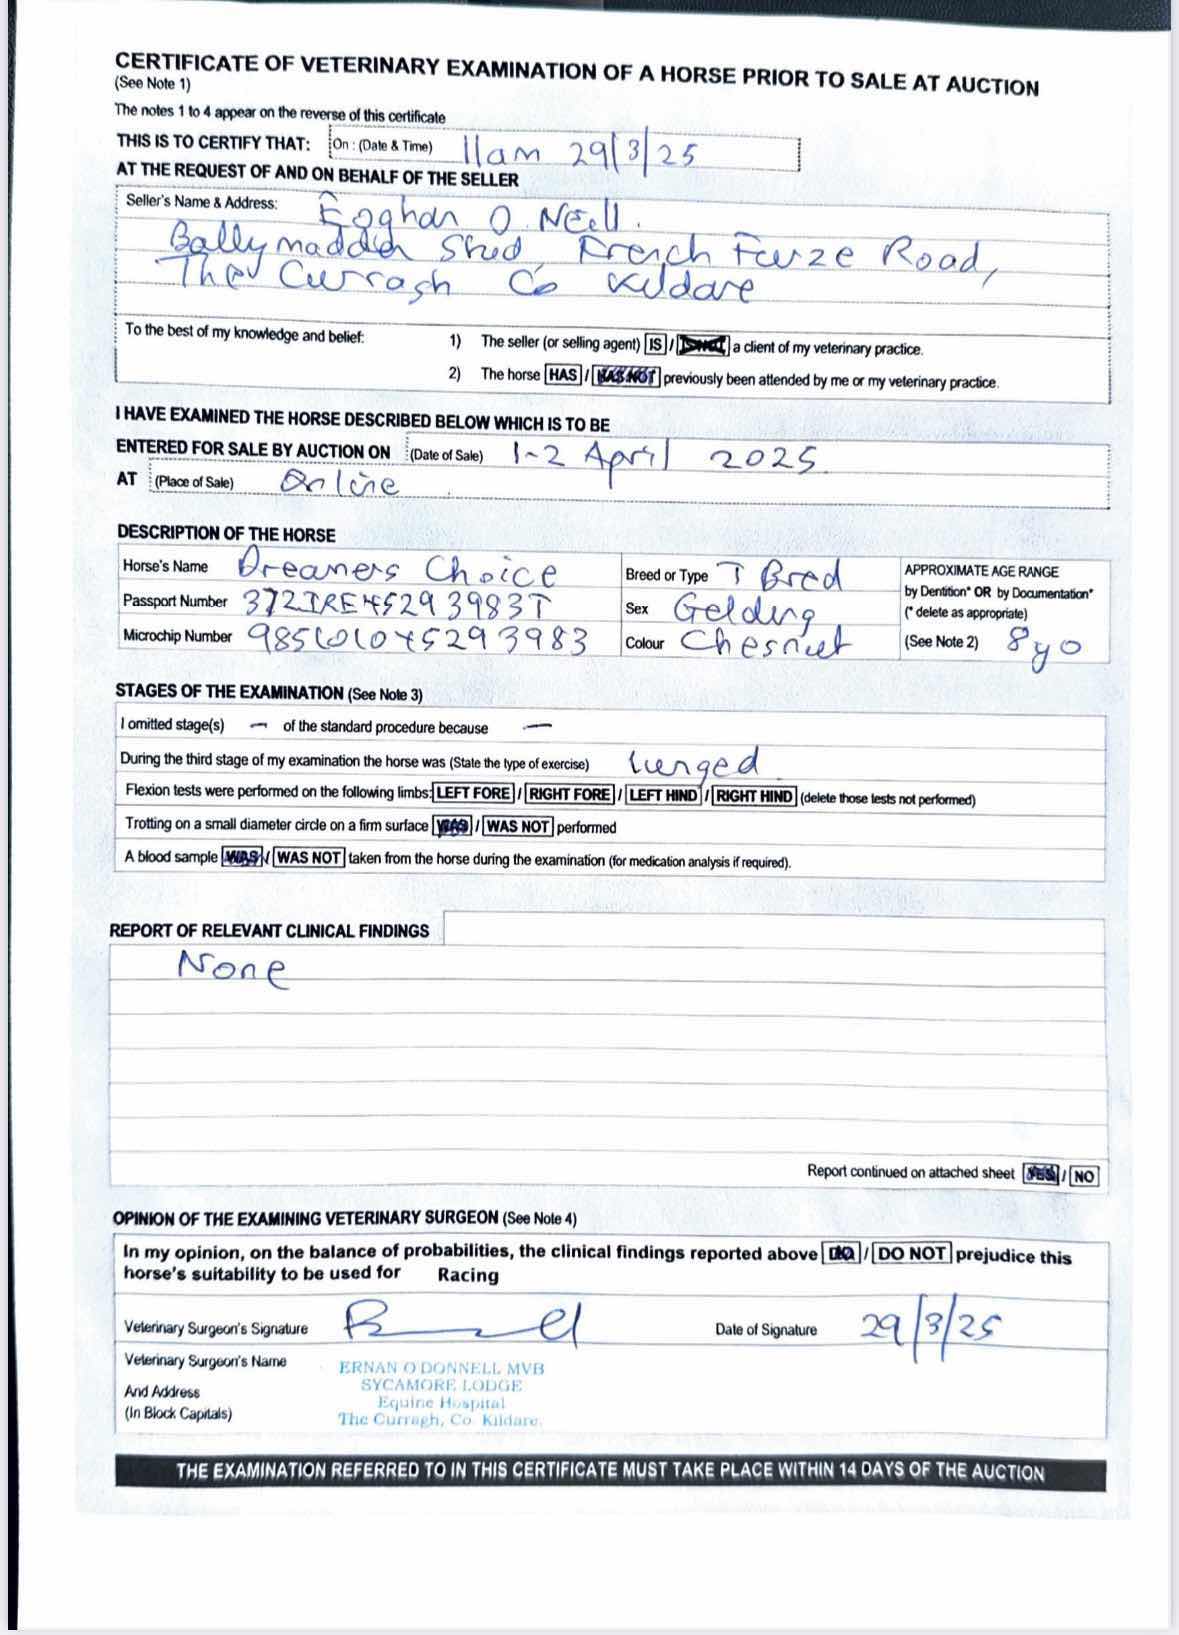 CERTIFICATE OF VETERINARY EXAMINATION OF A HORSE PRIOR TO SALE AT AUCTION
(See Note 1)
The notes 1 to 4 appear on the reverse of this certificate
THIS IS TO CERTIFY THAT: On : (Date & Time) 11am 29/3/25
AT THE REQUEST OF AND ON BEHALF OF THE SELLER
Seller's Name & Address: Eoghan O Neill.
Ballymadden Stud, French Furze Road,
The Curragh Co Kildare
To the best of my knowledge and belief: 1) The seller (or selling agent) IS / IS NOT a client of my veterinary practice.
2) The horse HAS / HAS NOT previously been attended by me or my veterinary practice.
I HAVE EXAMINED THE HORSE DESCRIBED BELOW WHICH IS TO BE
ENTERED FOR SALE BY AUCTION ON (Date of Sale) 1-2 April 2025
AT (Place of Sale) Online
DESCRIPTION OF THE HORSE
Horse's Name Dreamers Choice Breed or Type T Bred APPROXIMATE AGE RANGE
by Dentition* OR by Documentation*
Passport Number Sex Gelding (* delete as appropriate)
Microchip Number Colour Chesnut (See Note 2) 8yo
STAGES OF THE EXAMINATION (See Note 3)
I omitted stage(s) – of the standard procedure because –
During the third stage of my examination the horse was (State the type of exercise) lunged
Flexion tests were performed on the following limbs: LEFT FORE / RIGHT FORE / LEFT HIND / RIGHT HIND (delete those tests not performed)
Trotting on a small diameter circle on a firm surface WAS / WAS NOT performed
A blood sample WAS / WAS NOT taken from the horse during the examination (for medication analysis if required).
REPORT OF RELEVANT CLINICAL FINDINGS
None
Report continued on attached sheet YES / NO
OPINION OF THE EXAMINING VETERINARY SURGEON (See Note 4)
In my opinion, on the balance of probabilities, the clinical findings reported above DO / DO NOT prejudice this
horse's suitability to be used for Racing
Veterinary Surgeon's Signature Date of Signature 29/3/25
Veterinary Surgeon's Name
And Address
(In Block Capitals)
ERNAN O DONNELL MVB
SYCAMORE LODGE
Equine Hospital
The Curragh, Co. Kildare.
THE EXAMINATION REFERRED TO IN THIS CERTIFICATE MUST TAKE PLACE WITHIN 14 DAYS OF THE AUCTION